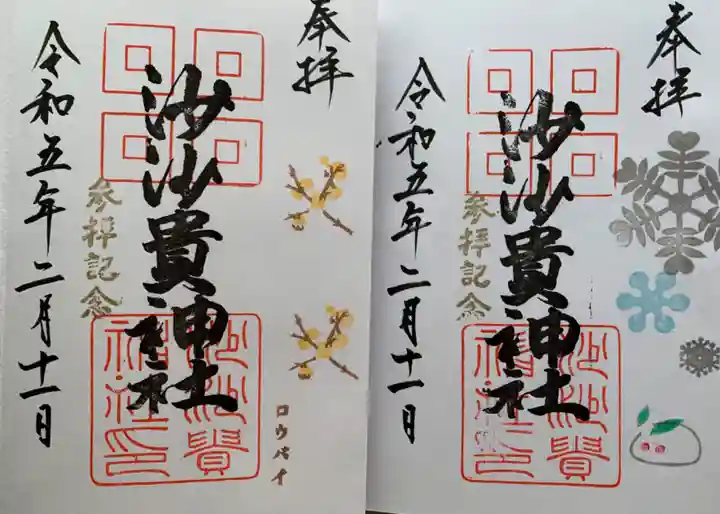 奉拝
沙沙貴神社
参拝記念
令和五年二月十一日
ロウバイ
奉拝
沙沙貴神社
参拝記念
令和五年二月十一日